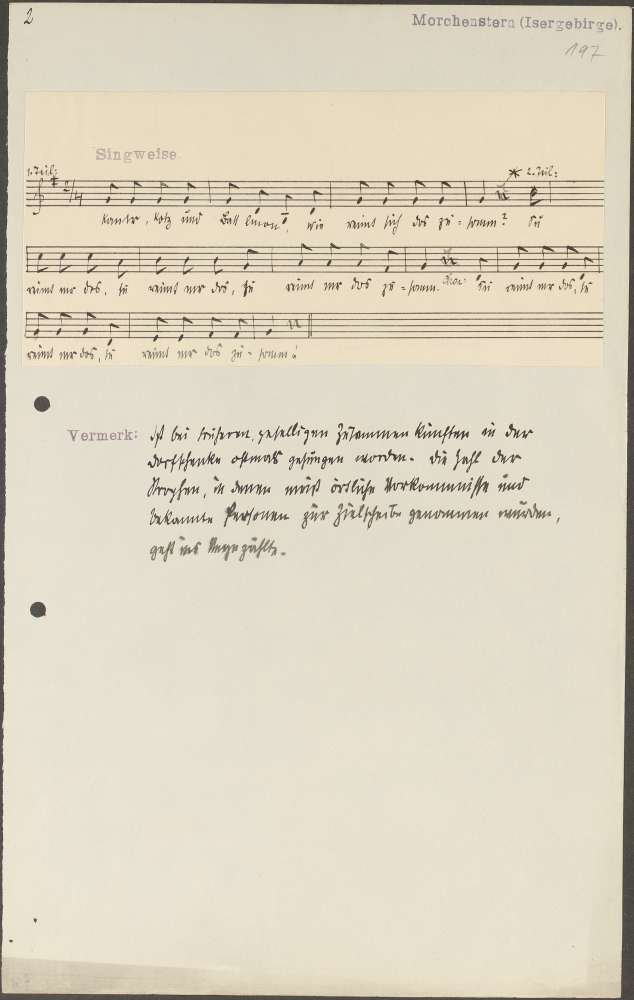 2
Morchenstern (Isergebirge).
197
Singweise.
1. Teil: * 2. Teil:
2/4
Kanter, Kotz und wie reimt sich dos zu-somm? Su
reimt mr dos, su reimt mr dos, su reimt mr dos zu-somm. Su reimt mr dos, su
reimt mr dos, su reimt mr dos zu-somm!
Vermerk: Ist bei früheren, geselligen Zusammenkünften in der
Dorfschenke oftmals gesungen worden. Die Zahl der
Strophen, in denen meist örtliche Vorkommnisse und
bekannte Personen zur Zielscheibe genommen wurden,
geht ins Ungezählte.